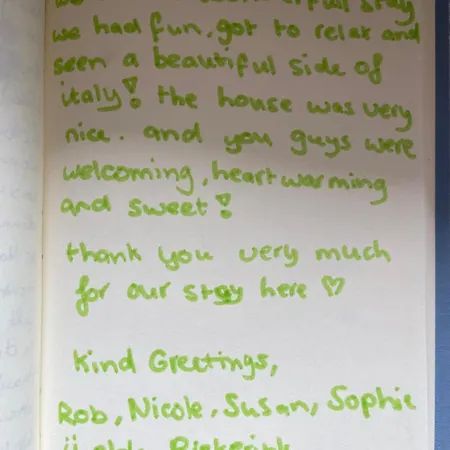 stay
we had fun, got to relax and
seen a beautiful side of
italy! the house was very
nice. and you guys were
welcoming, heartwarming
and sweet!
thank you very much
for our stay here ♡
Kind Greetings,
Rob, Nicole, Susan, Sophie